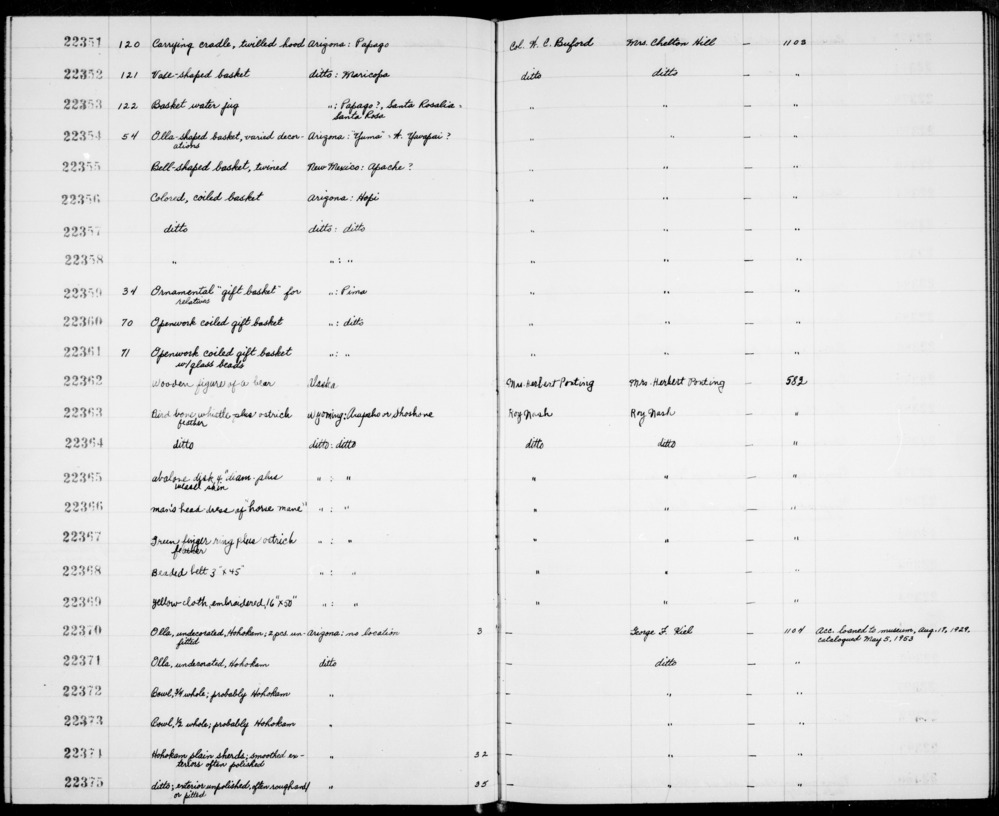 22351 120 Carrying cradle, twilled hood Arizona: Papago Col. H. C. Buford Mrs. Chelton Hill — 1103
22352 121 Vase-shaped basket ditto: Maricopa ditto ditto — "
22353 122 Basket water jug ": Papago?, Santa Rosalia - " " — "
Santa Rosa
22354 54 Olla-shaped basket, varied decor- Arizona: "Yuma" - H. Yavapai? " " — "
ations
22355 Bell-shaped basket, twined New Mexico: Apache? " " — "
22356 Colored, coiled basket Arizona: Hopi " " — "
22357 ditto ditto: ditto " " — "
22358 " ": " " " — "
22359 34 Ornamental "gift basket" for ": Pima " " — "
relatives
22360 70 Openwork coiled gift basket ": ditto " " — "
22361 71 Openwork coiled gift basket ": " " " — "
w/glass beads
22362 Wooden figure of a bear Alaska Mrs. Herbert Ponting Mrs. Herbert Ponting — 582
22363 Bird bone whistle plus ostrich Wyoming: Arapaho or Shoshone Roy Nash Roy Nash — "
feather
22364 ditto ditto: ditto ditto ditto — "
22365 abalone disk 4" diam. plus " : " " " — "
weasel skin
22366 man's head dress of "horse mane" " : " " " — "
22367 Green finger ring plus ostrich " : " " " — "
feather
22368 Beaded belt 3" x 45" " : " " " — "
22369 Yellow cloth, embroidered, 16" x 50" " : " " " — "
22370 Olla, undecorated, Hohokam; 2 pcs. un- Arizona: no location 3 — George F. Kiel — 1104 Acc. loaned to museum, Aug. 17, 1929,
fitted catalogued May 5, 1953
22371 Olla, undecorated, Hohokam ditto — ditto — "
22372 Bowl, 3/4 whole; probably Hohokam " — " — "
22373 Bowl, 1/2 whole; probably Hohokam " — " — "
22374 Hohokam plain sherds; smoothed ex- " 32 — " — "
teriors often polished
22375 ditto; exterior unpolished, often rough and/ " 35 — " — "
or pitted